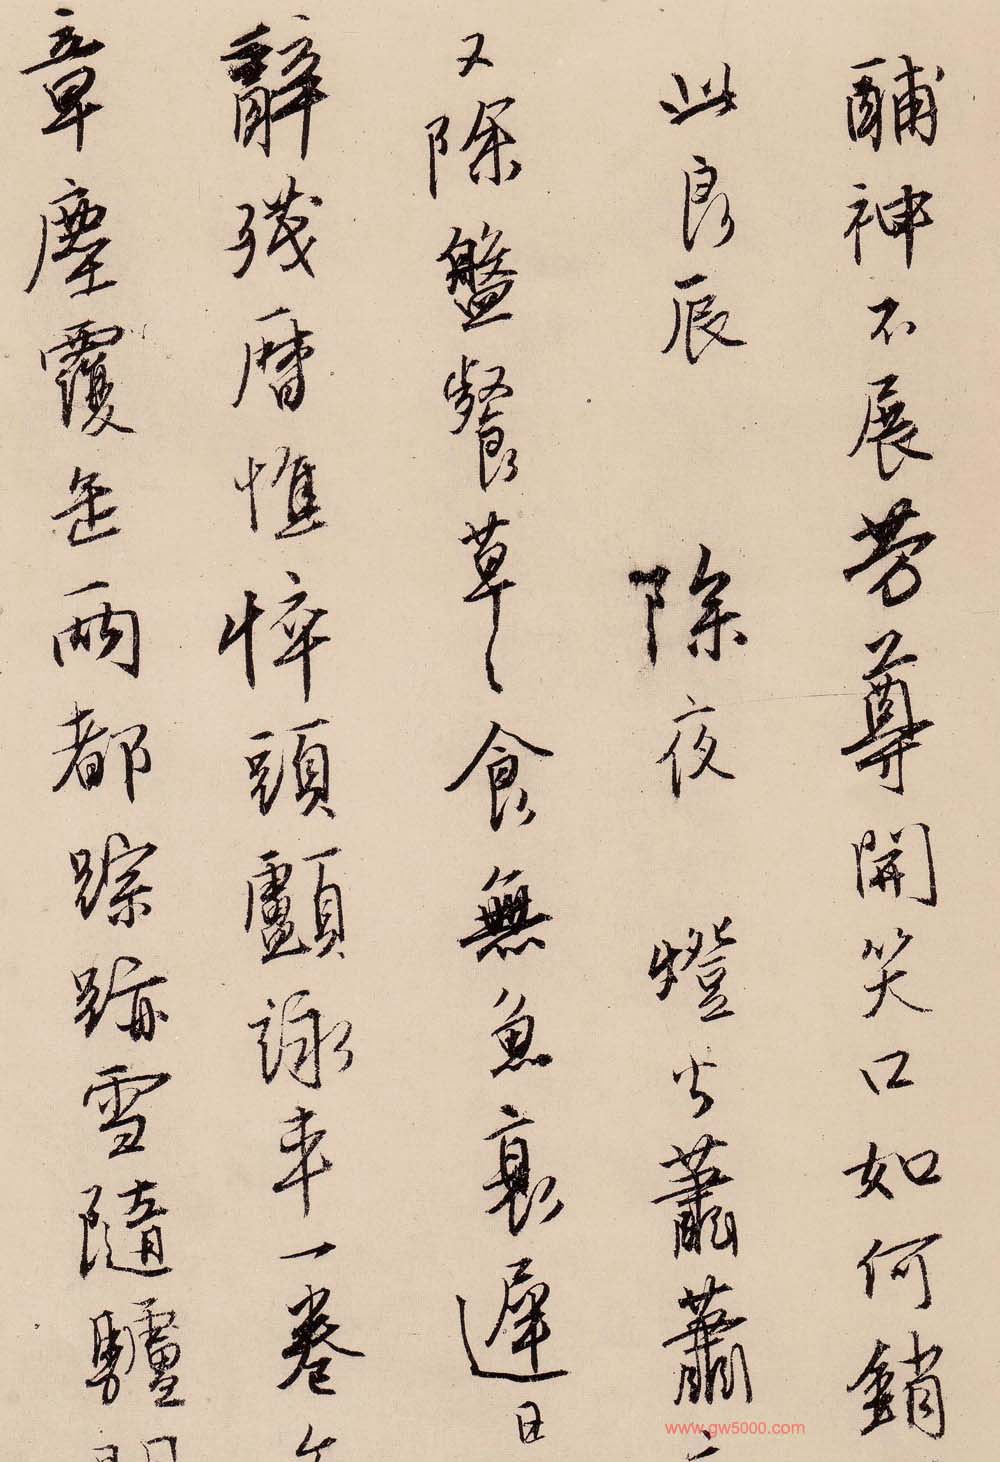 酺神不展芳尊開笑口如何銷
此良辰 除夜 燈火蕭蕭
又除盤餐草〻食無魚衰遲日
辭殘曆憔悴頭顱詠車一卷
章塵覆缶兩都踪跡雪隨驢
www.gw5000.com